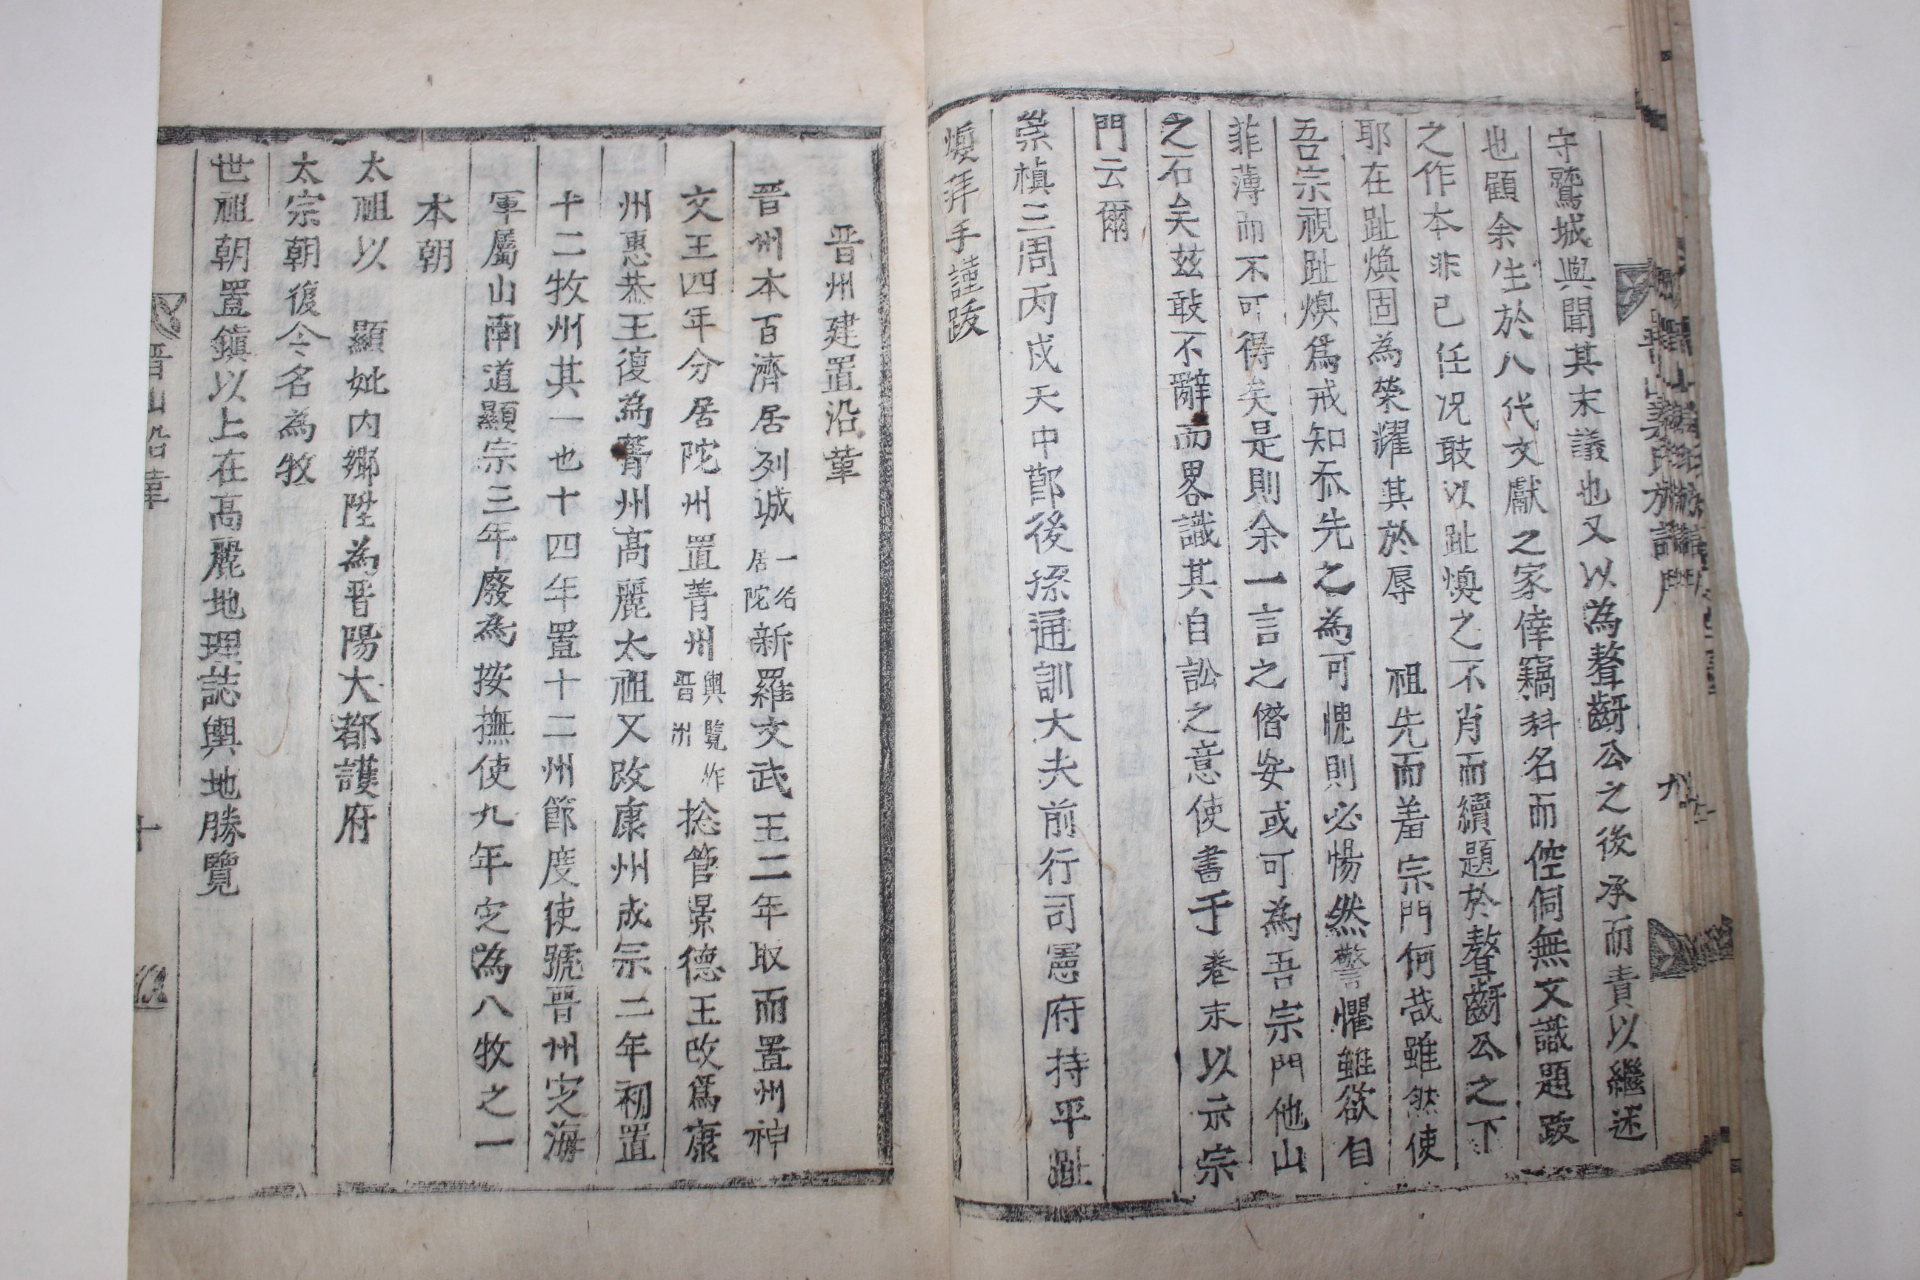 守鷲城與聞其末議也又以為聱齖公之後承而責以繼述
也顧余生於八代文獻之家倖竊科名而倥侗無文識題跋
之作本非己任况敢以趾煥之不肖而續題於聱齖公之下
耶在趾煥固為榮耀其於辱　祖先而羞宗門何哉雖然使
吾宗視趾煥爲戒知忝先之為可愧則必惕然警懼雖欲自
菲薄而不可得矣是則余一言之僭妄或可為吾宗門他山
之石矣玆敢不辭而畧識其自訟之意使書于卷末以示宗
門云爾
崇禎三周丙戌天中節後孫通訓大夫前行司憲府持平趾
煥拜手謹跋
晋州建置沿革
晋州本百濟居列城一名居陀新羅文武王二年取而置州神
文王四年分居陀州置菁州輿覽作晋州捴管景德王改爲康
州惠恭王復為菁州高麗太祖又改康州成宗二年初置
十二牧州其一也十四年置十二州節度使號晋州定海
軍屬山南道顯宗三年廢為按撫使九年定為八牧之一
本朝
太祖以　顯妣內鄉陞為晋陽大都護府
太宗朝復今名為牧
世祖朝置鎭以上在高麗地理誌輿地勝覽
晋山沿革
十